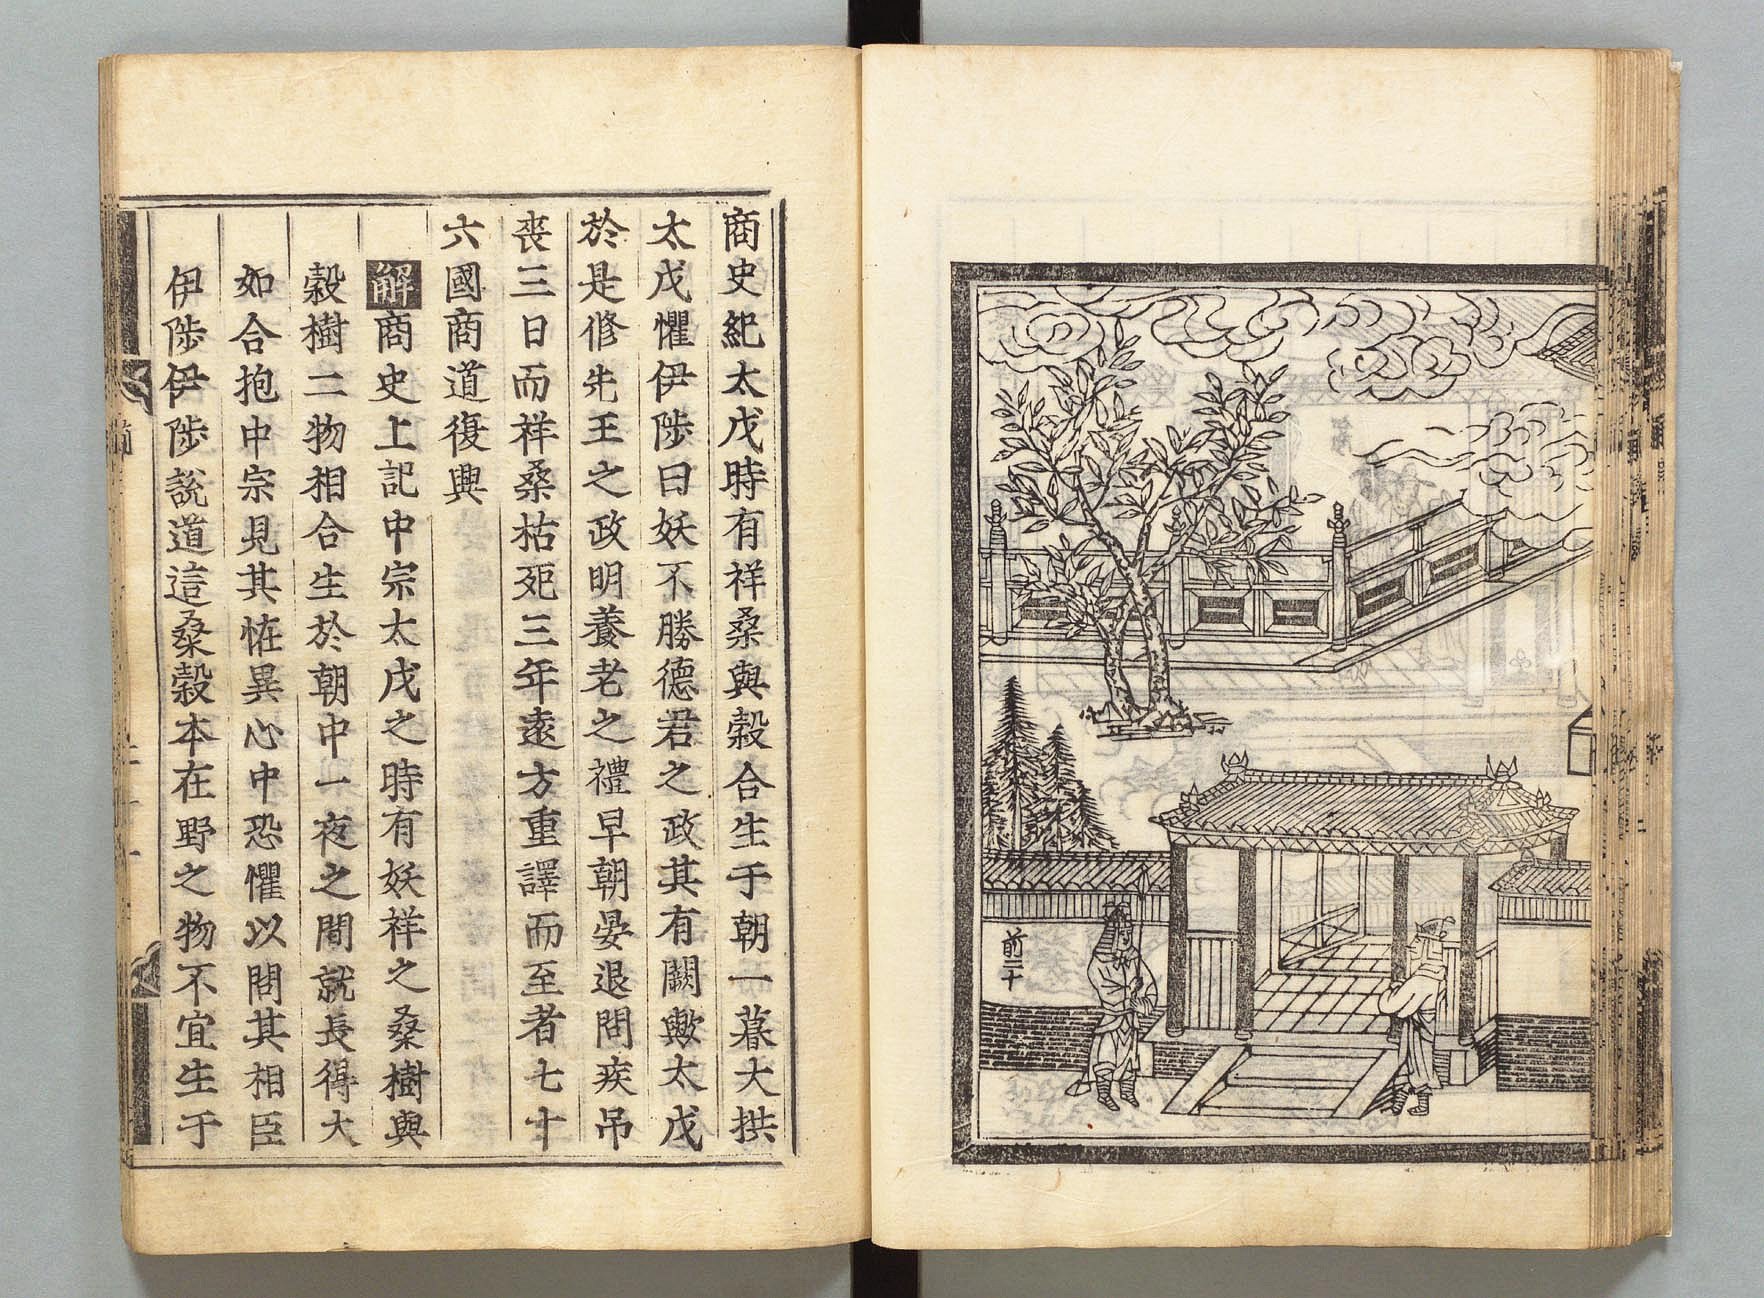 前二十
商史紀太戊時有祥桑與榖合生于朝一暮大拱
太戊懼伊陟曰妖不勝德君之政其有闕歟太戊
於是修先王之政明養老之禮早朝晏退問疾吊
喪三日而祥桑枯死三年遠方重譯而至者七十
六國商道復興
解商史上記中宗太戊之時有妖祥之桑樹與
榖樹二物相合生於朝中一夜之間就長得大
如合抱中宗見其恠異心中恐懼以問其相臣
伊陟伊陟說道這桑榖本在野之物不宜生于